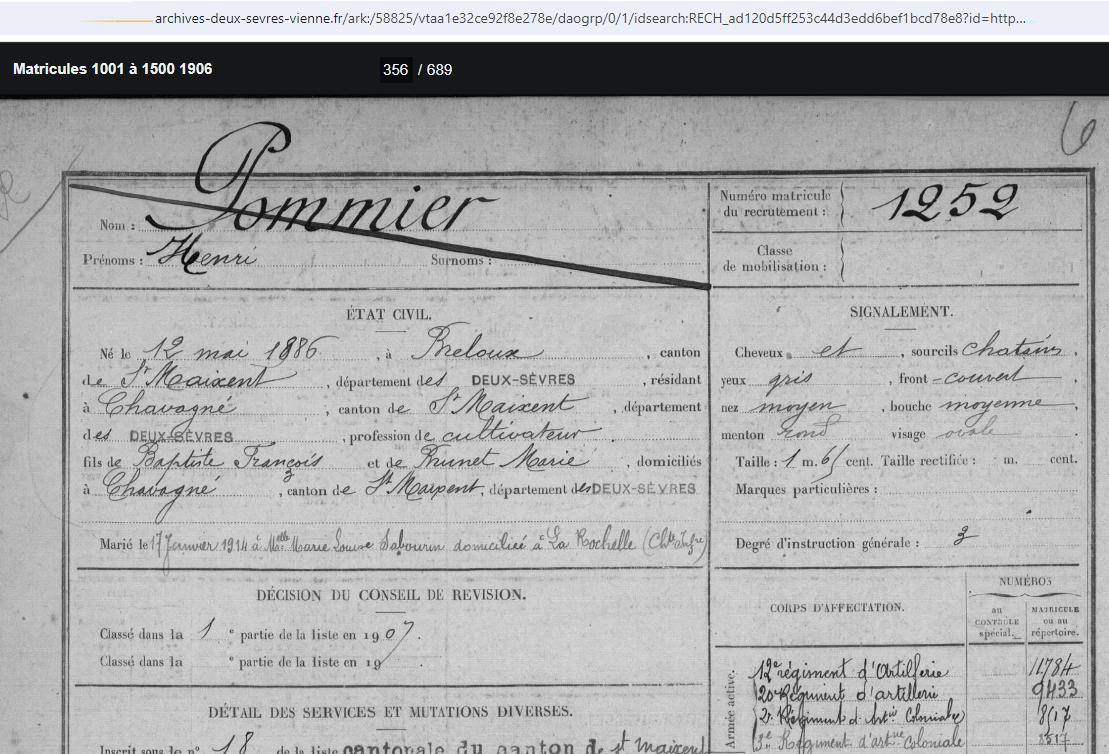 archives-deux-sevres-vienne.fr/ark:/58825/vtaa1e32ce92f8e278e/daogrp/0/1/idsearch:RECH_ad120d5ff253c44d3edd6bef1bcd78e8?id=http...
Matricules 1001 à 1500 1906 356 / 689
6
Nom : Pommier
Prénoms : Henri Surnoms :
Numéro matricule du recrutement : 1252
Classe de mobilisation :
ÉTAT CIVIL.
Né le 12 mai 1886, à Breloux, canton
de St Maixent, département des DEUX-SÈVRES, résidant
à Chavagné, canton de St Maixent, département
des DEUX-SÈVRES, profession de cultivateur
fils de Baptiste François et de Brunet Marie, domiciliés
à Chavagné, canton de St, département des DEUX-SÈVRES
Marié le 17 Janvier 1914 à Melle Marie Louise Sabourin domiciliée à La Rochelle (Chte Infre)
SIGNALEMENT.
Cheveux et, sourcils chatains,
yeux gris, front couvert,
nez moyen, bouche moyenne,
menton rond visage ovale.
Taille : 1 m. 61 cent. Taille rectifiée : m. cent.
Marques particulières :
Degré d'instruction générale : 3
DÉCISION DU CONSEIL DE REVISION.
Classé dans la 1e partie de la liste en 1907.
Classé dans la e partie de la liste en 19 .
DÉTAIL DES SERVICES ET MUTATIONS DIVERSES.
Inscrit sous le n° 18 de la liste cantonale du canton de St Maixent
CORPS D'AFFECTATION.
NUMÉROS
au CONTRÔLE spécial.
MATRICULE ou au répertoire.
Armée active.
12e régiment d'Artillerie 11784
20e Régiment d'artillerie 9433
2e Régiment d'Artie Coloniale 1817
3e Régiment d'artie Coloniale